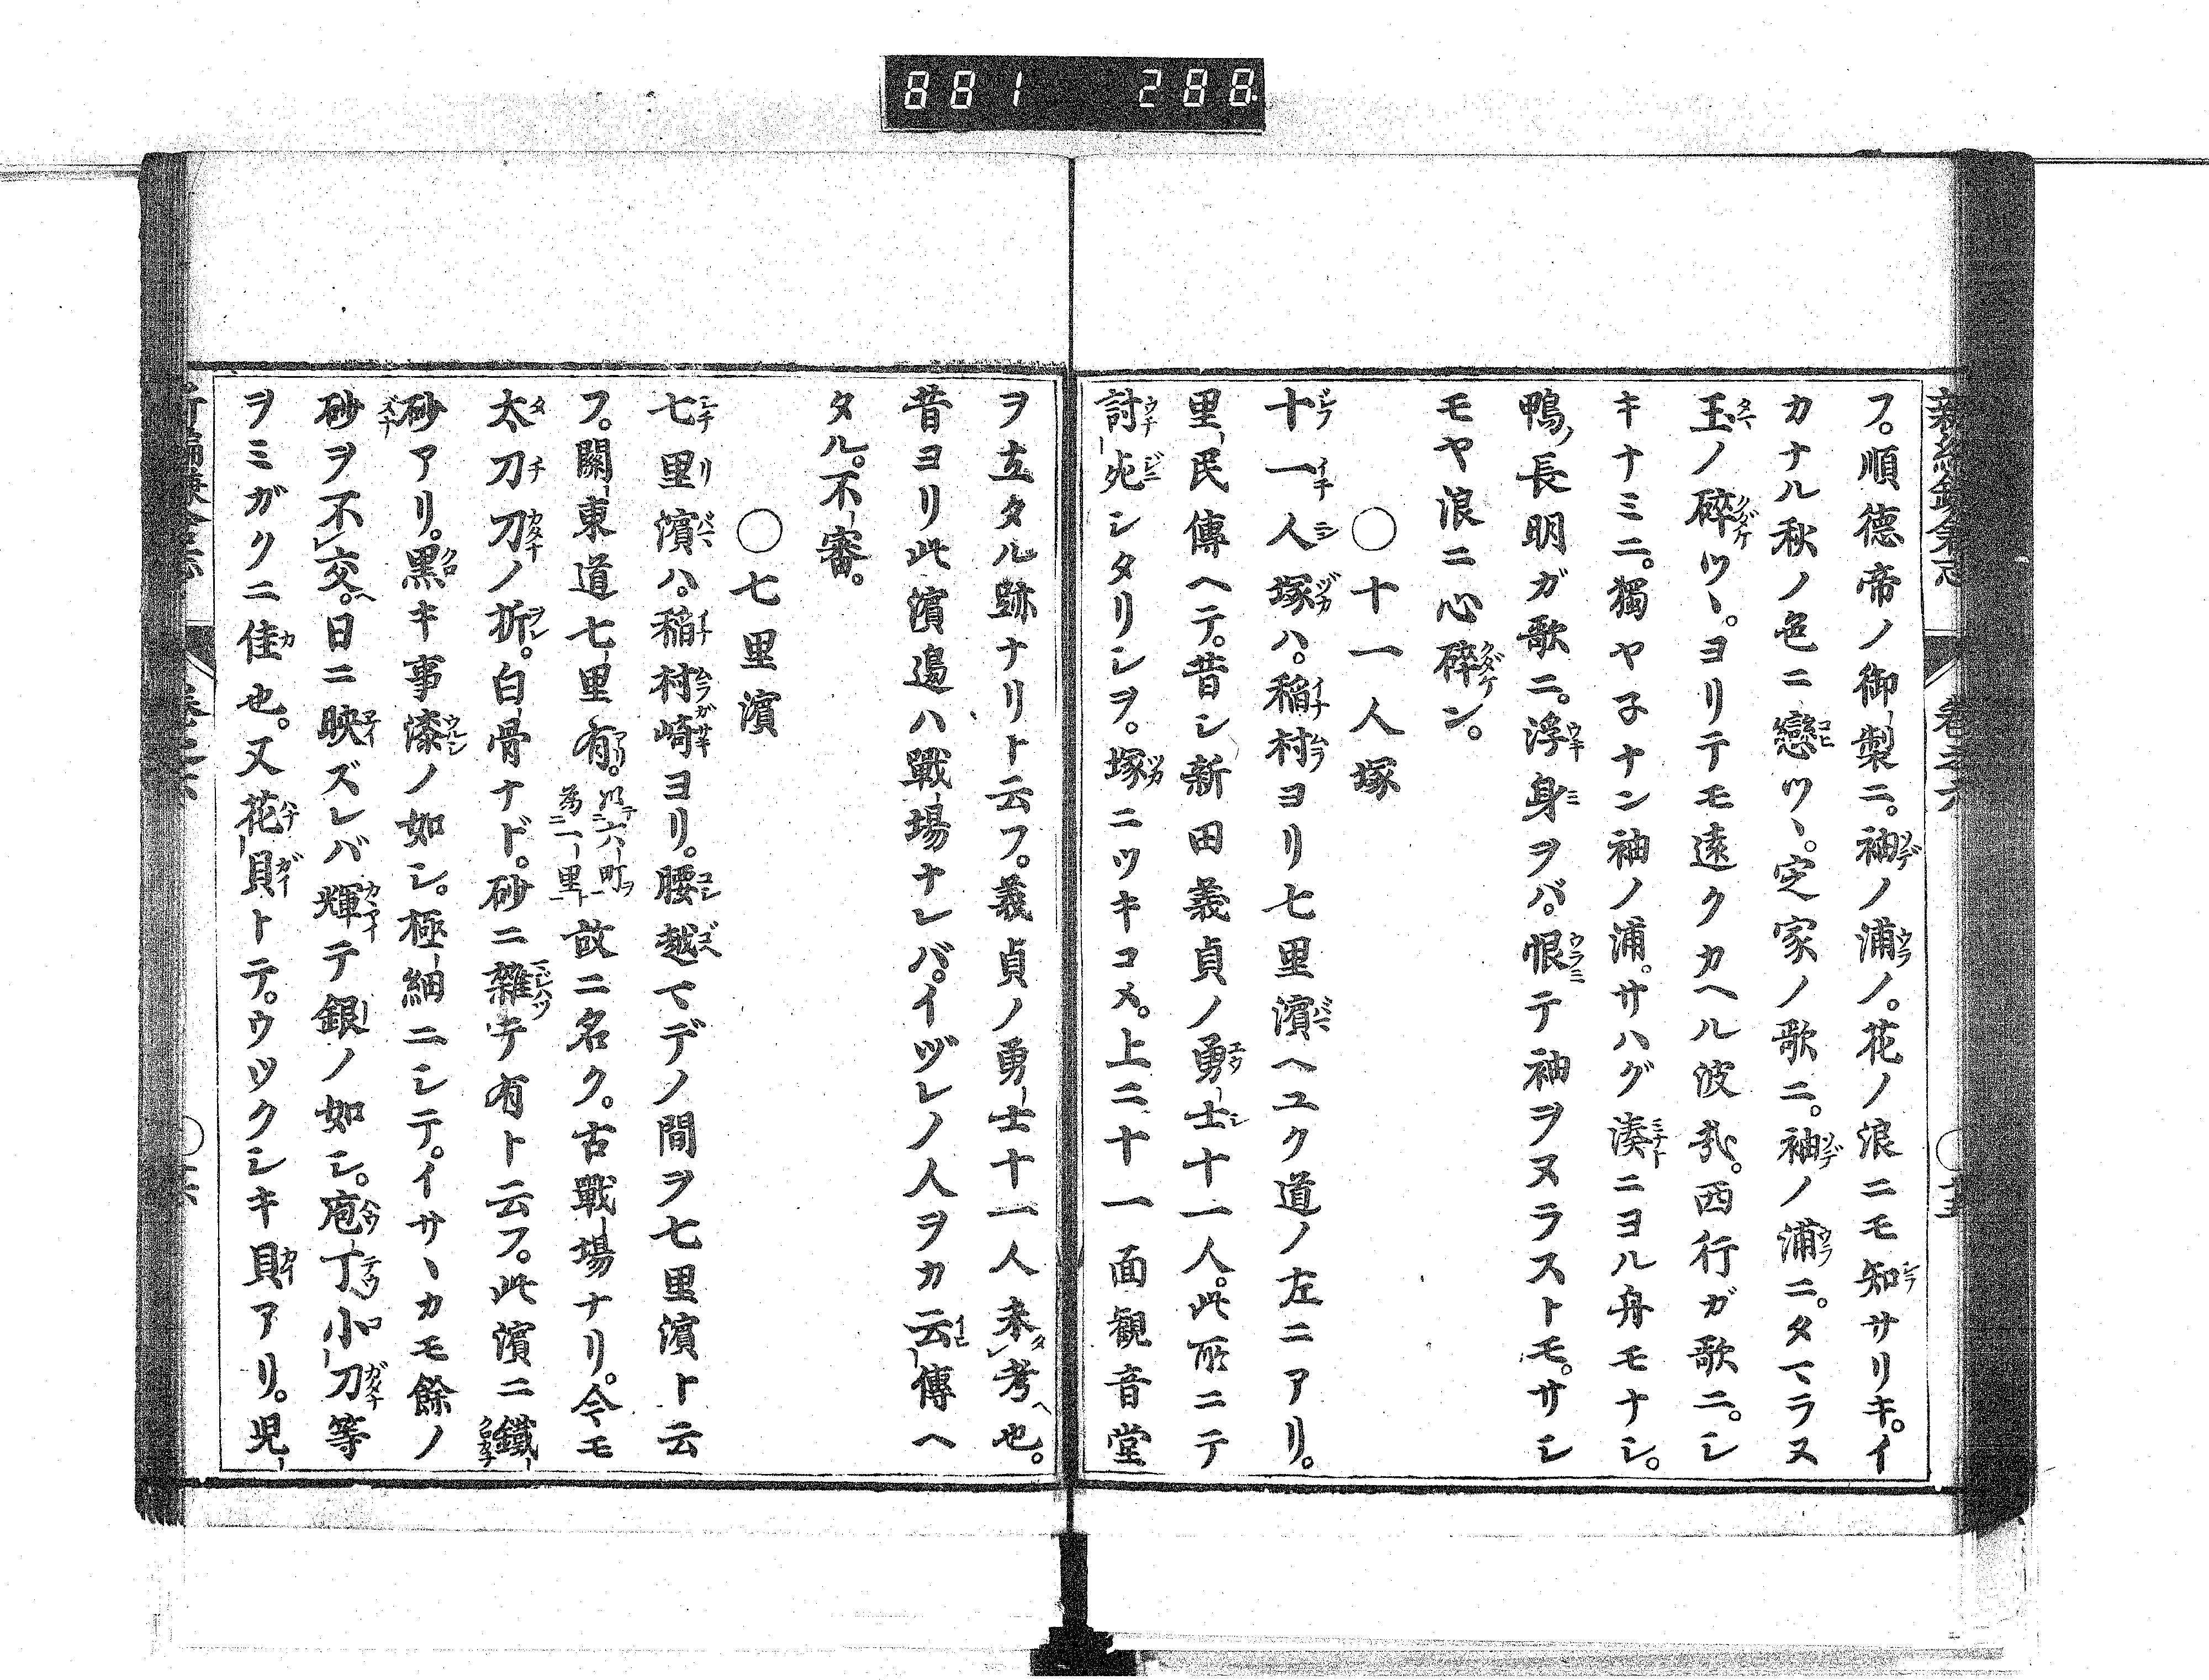 881 288
新編鎌倉志 卷之六 〇十五
フ。順德帝ノ御製ニ。袖ノ浦ノ。花ノ浪ニモ知サリキ。イ
カナル秋ノ色ニ戀ツヽ。定家ノ歌ニ。袖ノ浦ニ。タマラヌ
玉ノ碎ツヽ。ヨリテモ遠クカヘル波哉。西行ガ歌ニ。シ
キナミニ。獨ヤ子ナン袖ノ浦。サハグ湊ニヨル舟モナシ。
鴨ノ長明ガ歌ニ。浮身ヲバ。恨テ袖ヲヌラストモ。サシ
モヤ浪ニ心碎ン。
〇十一人塚
十一人塚ハ。稲村ヨリ七里濱ヘユク道ノ左ニアリ。
里民傳ヘテ。昔シ新田義貞ノ勇士十一人。此所ニテ
討死シタリシヲ。塚ニツキコメ。上ニ十一面観音堂
ヲ立タル跡ナリト云フ。義貞ノ勇士十一人未考也。
昔ヨリ此濱邊ハ戰場ナレバ。イヅレノ人ヲカ云傳ヘ
タル。不審。
〇七里濱
七里濱ハ。稲村崎ヨリ。腰越マデノ間ヲ七里濱ト云
フ。關東道七里有。以六町ヲ為一里ト故ニ名ク。古戰場ナリ。今モ
太刀刀ノ折。白骨ナド。砂ニ雜テ有ト云フ。此濱ニ鐵
砂アリ。黑キ事漆ノ如シ。極細ニシテ。イサヽカモ餘ノ
砂ヲ不交。日ニ映ズレバ輝テ銀ノ如シ。庖丁小刀等
ヲミガクニ佳也。又花貝トテ。ウツクシキ貝アリ。児